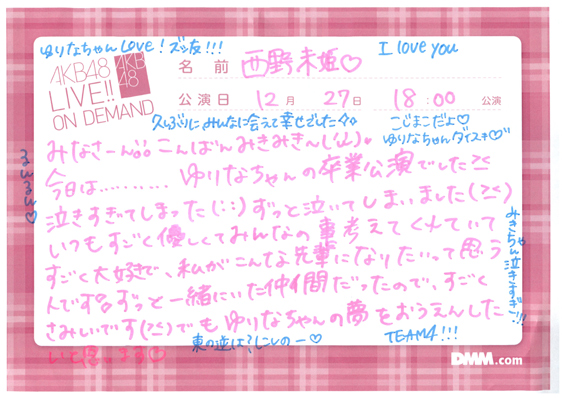 ゆりなちゃんLOVE!ズッ友!!!
I love you
AKB48
LIVE!!
ON DEMAND
AKB
48
名 前 西野未姫♡
公演日 12月 27日 18:00 公演
久しぶりにみんなに会えて幸せでした
ごまこだよ♡
ゆりなちゃんダイスキ♡
みなさーん こんばんみきみきーん(
今日は………… ゆりなちゃんの卒業公演でした
泣きすぎてしまった ずっと泣いてしまいました
いつもすごく優しくてみんなの事考えてくれていて
すごく大好きで、私がこんな先輩になりたいって思う
人です ずっと一緒にいた仲間だったので、すごく
さみしいです でもゆりなちゃんの夢をおうえんした
いと思います♡
るるるる♡
みきちゃん泣きすぎ!!!
東の逆は?にしのー♡
TEAM4!!!
DMM.com